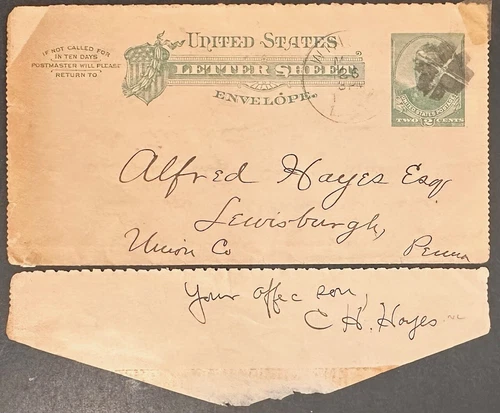 IF NOT CALLED FOR
IN TEN DAYS
POSTMASTER WILL PLEASE
RETURN TO
UNITED STATES
LETTER SHEET
ENVELOPE.
UNITED STATES POSTAGE
TWO 2 CENTS
Alfred Hayes Esq
Lewisburgh,
Union Co Penna
Your affec son,
C H. Hayes